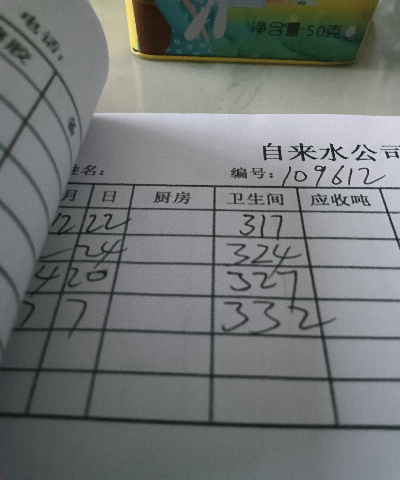 电话:
净含量:50克
自来水公司
姓名: 编号: 109612
月 日 厨房 卫生间 应收吨
12 22 317
24 324
4 20 327
7 7 332